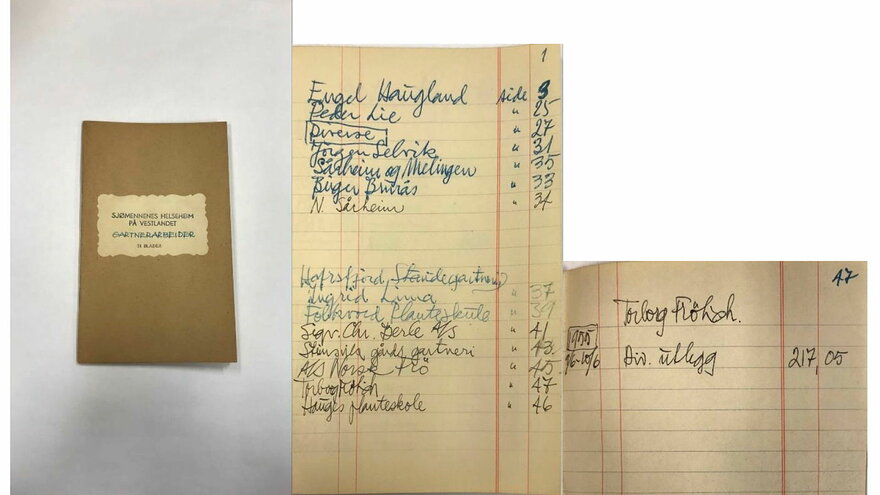 SJØMENNENES HELSEHEIM
PÅ VESTLANDET
GARTNERARBEIDER
BLADER
1
Engel Haugland side 3
Peder Lie " 25
Diverse " 27
Jörgen Selvik " 31
Sårheim og Melingen " 35
Birger " 33
N. Sårheim " 34
Hafrsfjord Staudegartneri " 37
Ingrid Lima " 39
Folkvord Planteskule
Sigv. Chr. Berle A/S " 41
gårds gartneri " 43
A/S Norsk Frö " 45
Torborg Frölich " 47
Hauges planteskole " 46
47
Torborg Frölich.
1955
Div. utlegg 217,05